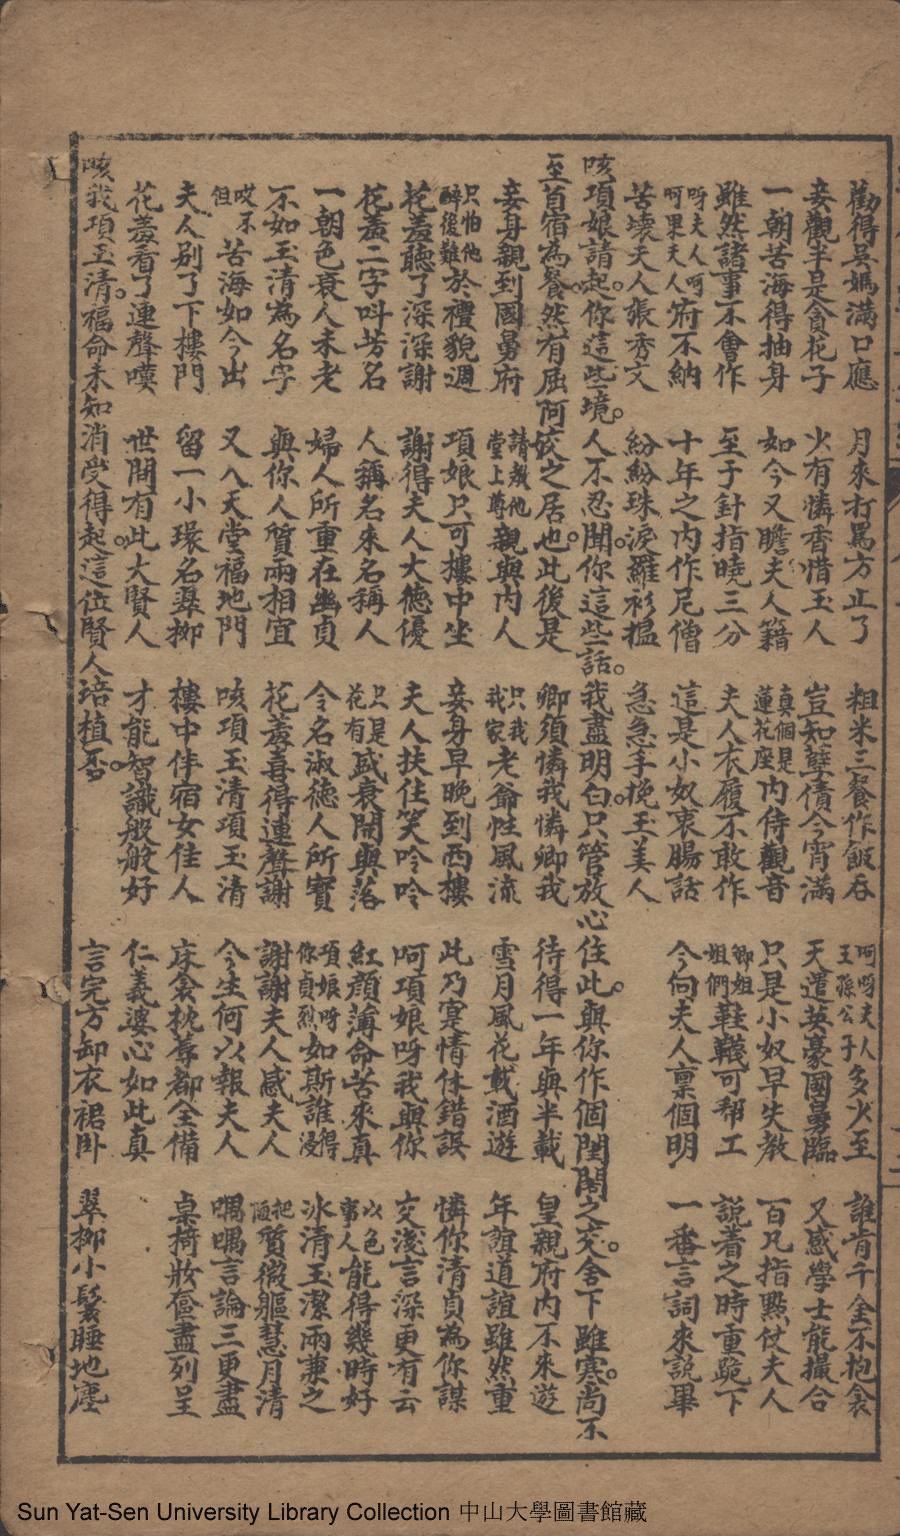 勸得吳媽滿口應　月來打罵方止了　粗米三餐作飯吞　呵呀夫人王孫公子多少至　誰肯千金不抱衾
妾觀半是貪花子　少有憐香惜玉人　豈知孽債今宵滿　天遣英豪國舅臨　又感學士能撮合
一朝苦海得抽身　如今又瞻夫人籍　真個是蓮花座內侍觀音　只是小奴早失教　百凡指點仗夫人
雖然諸事不會作　至于針指曉三分　夫人衣履不敢作　卿姐姐們鞋韈可帮工　說着之時重跪下
呀夫人呵呵果夫人府不納　十年之內作尼僧　這是小奴衷腸話　今向夫人禀個明　一番言詞來說畢
苦壞夫人張秀文　紛紛珠淚羅衫搵　急急手挽玉美人
咳項娘請起。你這些境。人不忍聞。你這些話。我盡明白。只管放心住此。與你作個閨閣之交。舍下雖寒。尚不
至首宿為餐。然有屈阿姣之居也。此後是卿須憐我憐卿我　待得一年與半載　皇親府內不來遊
妾身親到國舅府　請幾他堂上尊親與內人　只我我家老爺性風流　雪月風花載酒遊　年誼道誼雖然重
只怕他醉後難於禮貌週　項娘只可樓中坐　妾身早晚到西樓　此乃寔情休錯誤　憐你清貞為你謀
花羞聽了深深謝　謝得夫人大德優　夫人扶住笑吟吟　呵項娘呀我與你　交淺言深更有云
花羞二字呌芳名　人稱名來名稱人　只是花有盛衰開與落　紅顏薄命苦來真　以色事人能得幾時好
一朝色衰人未老　婦人所重在幽貞　令名淑德人所寶　項娘呀你貞烈如斯誰得浸　冰清玉潔兩兼之
不如玉清為名字　與你人質兩相宜　花羞喜得連聲謝　謝謝夫人感夫人　把陋質微軀慧月清
哎不但苦海如今出　又入天堂福地門　咳項玉清項玉清　今生何以報夫人　喁喁言論三更盡
夫人別了下樓門　留一小環名翠柳　樓中伴宿女佳人　床衾枕蓐都全備　桌椅妝奩盡列呈
花羞看了連聲嘆　世間有此大賢人　才能智識般般好　仁義婆心如此真
咳我項玉清。福命未知消受得起。這位賢人培植否。　言完方卸衣裙卧　翠柳小鬟睡地塵
Sun Yat-Sen University Library Collection 中山大學圖書館藏